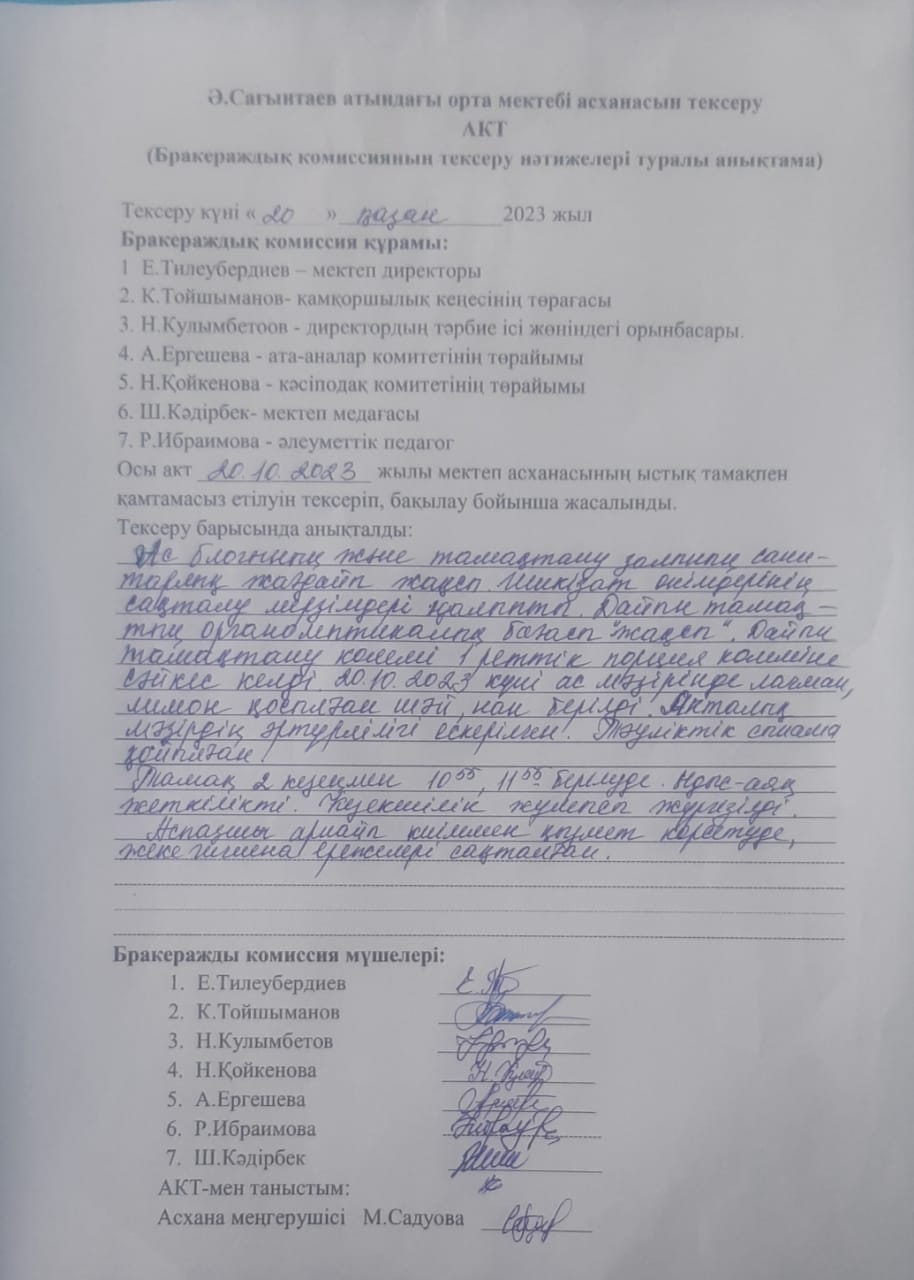 Ә.Сағынтаев атындағы орта мектебі асханасын тексеру
АКТ
(Бракераждық комиссиянын тексеру нәтижелері туралы анықтама)
Тексеру күні « 20 » қазан 2023 жыл
Бракераждық комиссия құрамы:
1 Е.Тилеубердиев – мектеп директоры
2. К.Тойшыманов- қамқоршылық кеңесінің төрағасы
3. Н.Кулымбетоов - директордың тәрбие ісі жөніндегі орынбасары.
4. А.Ергешева - ата-аналар комитетінің төрайымы
5. Н.Қойкенова - кәсіподақ комитетінің төрайымы
6. Ш.Кәдірбек- мектеп медағасы
7. Р.Ибраимова - әлеуметтік педагог
Осы акт 20.10.2023 жылы мектеп асханасының ыстық тамақпен
қамтамасыз етілуін тексеріп, бақылау бойынша жасалынды.
Тексеру барысында анықталды:
Ас блогының және тамақтану залының сани-
тарлық жағдайы жақсы. Шикізат өнімдерінің
сақталу мерзімдері қалыпты. Дайын тамақ-
тың органолептикалық бағасы "жақсы". Дайын
тамақтану көлемі 1 реттік порция көлеміне
сәйкес келді. 20.10.2023 күні ас мәзірінде лагман,
лимон қосылған шәй, нан берілді. Апталық
мәзірдің әртүрлілігі ескерілген. Тәуліктік сынама
қойылған.
Тамақ 2 кезеңмен 10⁵⁵, 11⁵⁵ берілуде. Ыдыс-аяқ
жеткілікті. Кезекшілік жүйелі жүргізілді.
Аспазшы арнайы киіммен қызмет көрсетуде,
жеке гигиена ережелері сақталған.
Бракеражды комиссия мүшелері:
1. Е.Тилеубердиев
2. К.Тойшыманов
3. Н.Кулымбетов
4. Н.Қойкенова
5. А.Ергешева
6. Р.Ибраимова
7. Ш.Кәдірбек
АКТ-мен таныстым:
Асхана меңгерушісі М.Садуова